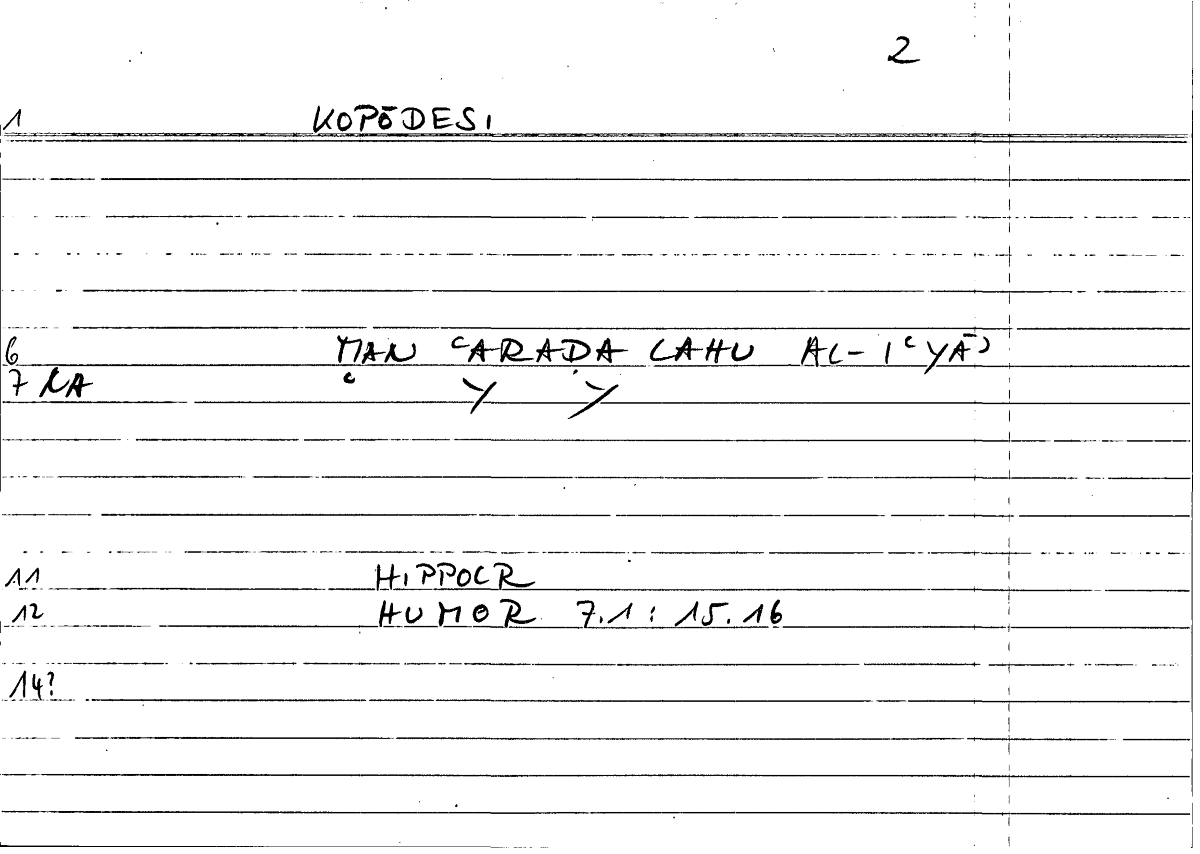 2
1 KOPŌDESI
6 MAN ʿARADA LAHU AL-IʿYĀʾ
7 RA ʿ Y Y
11 HIPPOCR
12 HUMOR 7.1 : 15.16
14?